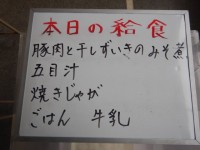 本日の給食
豚肉と干しずいきのみそ煮
五目汁
焼きじゃが
ごはん 牛乳